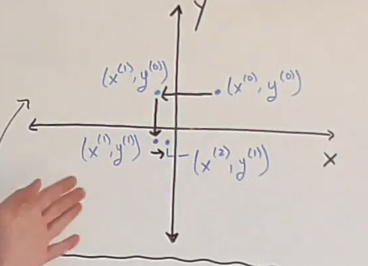 y
(x^(1), y^(0)) (x^(0), y^(0))
x
(x^(1), y^(1)) (x^(2), y^(1))